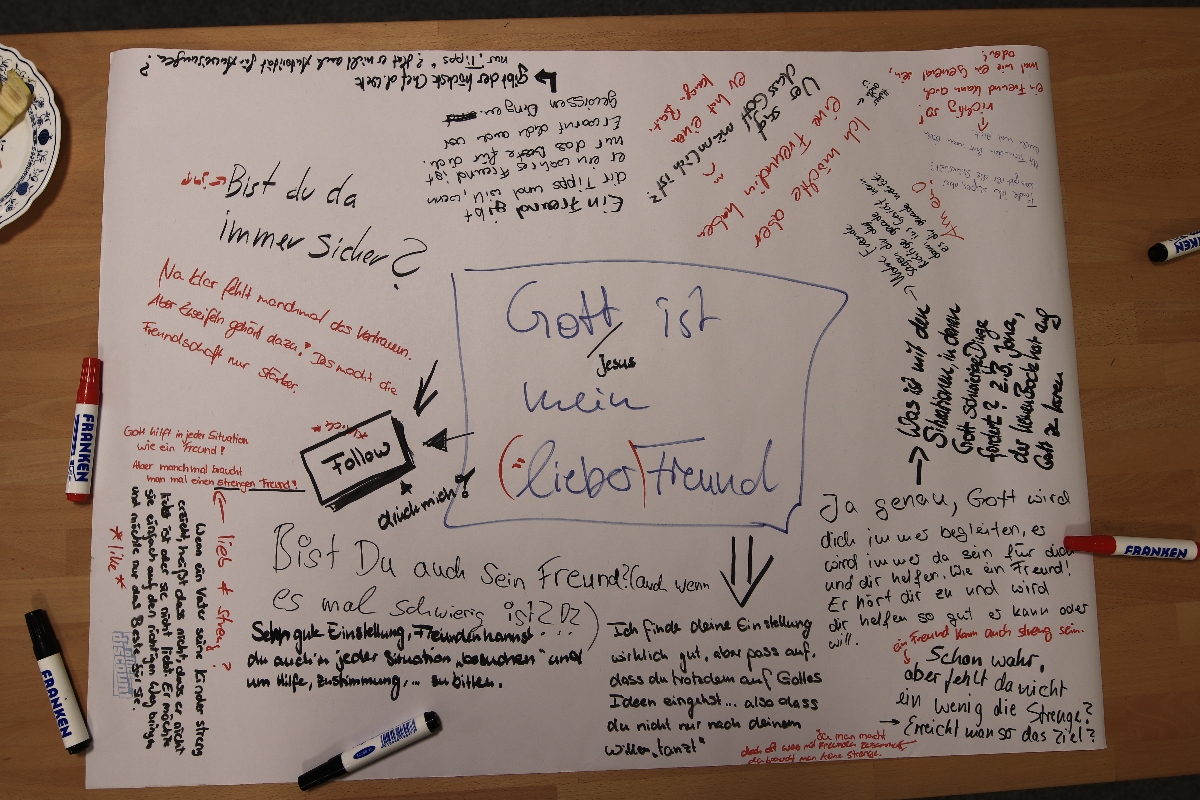 Gott ist
Jesus
mein
("lieber) Freund
Bist du da
immer sicher?
Na klar fehlt manchmal das Vertrauen.
Aber Zweifeln gehört dazu! Das macht die
Freundschaft nur stärker.
*klick*
Follow
drück mich!
Gott hilft in jeder Situation
wie ein Freund!
Aber manchmal braucht
man mal einen strengen Freund!
lieb + streng?
Wenn ein Vater seine Kinder streng
erzieht, heißt das nicht, dass er nicht
lieb ist oder sie nicht liebt. Er möchte
sie einfach auf den richtigen Weg bringen
und möchte nur das Beste für sie.
*like*
Bist Du auch Sein Freund? (auch wenn
es mal schwierig ist???)
Sehr gute Einstellung, Freunden kannst
du auch in jeder Situation „besuchen" und
um Hilfe, Zustimmung, ... zu bitten.
Ich finde deine Einstellung
wirklich gut, aber pass auf,
dass du trotzdem auf Gottes
Ideen eingehst... also dass
du nicht nur nach deinem
Willen „tanzt"
Ja genau, Gott wird
dich immer begleiten, es
wird immer da sein für dich
und dir helfen. Wie ein Freund!
Er hört dir zu und wird
dir helfen so gut es kann oder
will.
ein Freund kann auch streng sein.
Schon wahr,
aber fehlt da nicht
ein wenig die Strenge?
Erreicht man so das Ziel?
Ja man macht
doch oft was mit Freunden zusammen
da braucht man keine Strenge.
Was ist mit den
Situationen, in denen
Gott schwierige Dinge
fordert? z.B. Jona,
der keinen Bock hat auf
Gott zu hören
Ein Freund gibt
dir Tipps und will, wenn
er ein wahres Freund ist
nur das beste für dich.
Er warnt dich auch vor
gewissen Dingen
Gibt der höchste Chef d. Welt
nur „Tipps"? Hat er nicht auch Autorität für Anweisungen?
Ich möchte aber
eine Freundin haben
Wer sagt
dass Gott
männlich ist?
er hat einen
lang. Bart.
Amen!
Wahre Freunde
sagen dir das
Richtige
richtig so!
ein Freund kann auch
mal wie ein General sein,
oder?
FRANKEN
FRANKEN
FRANKEN